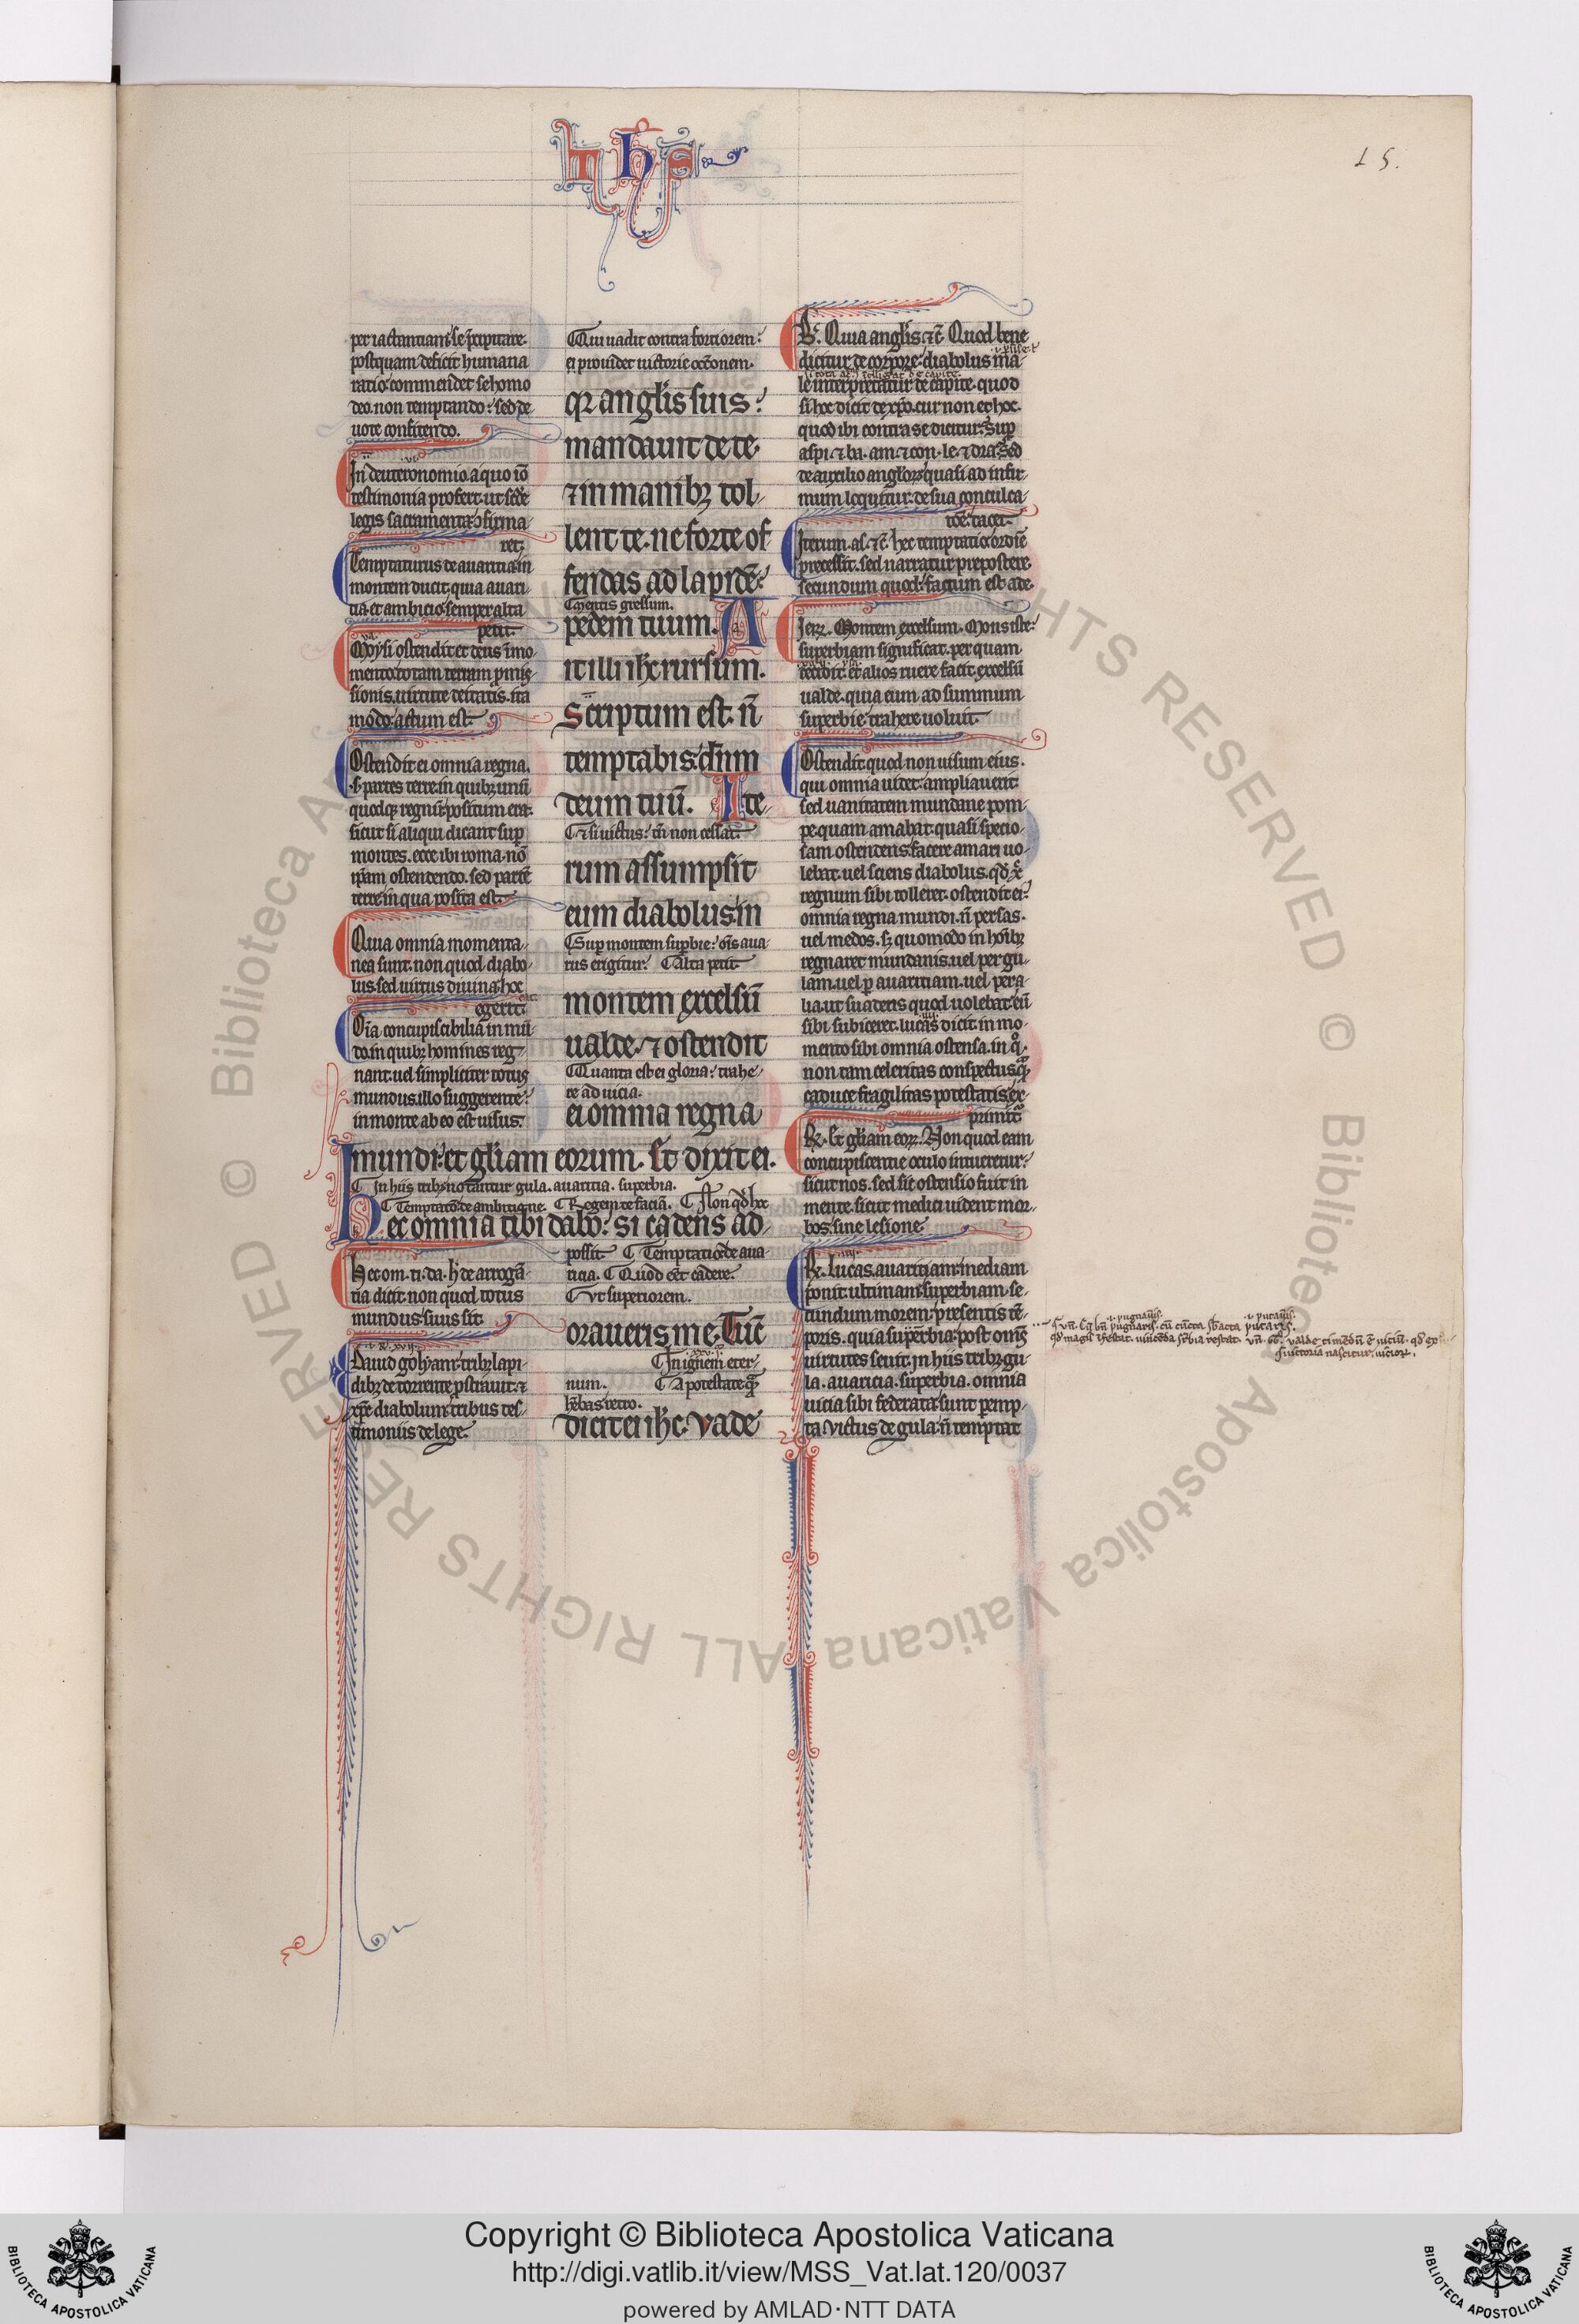 ihs
15.
per iactantiam se p̄cipitare.
postquam deficit humana
ratio. commendet se homo
deo. non temptando. sed de
uote confitendo.
In deuteronomio a quo iō
testimonia profert. ut scd̄e
legis sacramenta ↄfirma
ret.
Temptaturus de auaritia in
montem ducit. quia auari
tia et ambicio semper alta
petit.
Moysi ostendit et deus ī mo
mento totam terram p̄mis
sionis. uirtute deitatis. ita
modo actum est.
Ostendit ei omnia regna.
.s. partes terre in quibꝫ unū
quodqꝫ regnū positum erat.
sicut si aliqui dicant sup
montes. ecce ibi roma. nō
ip̄am ostendendo. sed partē
terre in qua posita est.
Quia omnia momenta
nea sunt. non quod diabo
lus. sed uirtus diuina hoc
egerit.
Oīa concupiscibilia in mū
do. in quibꝫ homines reg
nant. uel simpliciter totus
mundus illo suggerente.
in monte ab eo est uisus.
Hec om. ti. da. h̄ de arrogā
tia dicit. non quod totus
mundus suus sit.
Dauid golyam tribꝫ lapi
dibꝫ de torrente p̄strauit. ⁊
xp̄c diabolum tribus tes
timoniis de lege.
Qui uadit contra fortiorem.
ei prouidet uictorie occōnem.
qꝛ angl̄is suis
mandauit de te.
⁊ in manibꝫ tol
lent te. ne forte of
fendas ad lapidē
mentis gressum.
pedem tuum. A
it illi ih̄c rursum.
Scriptum est. n̄
temptabis. dn̄m
deum tuū. Ite
⁊ si uictus. tn̄ non cessat.
rum assumpsit
eum diabolus in
Sup montem supbie. oīs aua
rus erigitur. Alta petit.
montem excelsū
ualde. ⁊ ostendit
Quanta est ei gloria. trahe
re ad uicia.
ei omnia regna
mundi. et gl̄iam eorum. Et dixit ei.
In hiis tribꝫ notantur gula. auaritia. superbia.
Temptatō de ambitione. Regem te faciā. Non qd̄ hec
Hec omnia tibi dabo. si cadens ad
possit. Temptatio de aua
ricia. Quod est cadere.
Vt superiorem.
oraueris me. Tūc
In ignem eter
num. A potestate qm̄
habebas retro.
dicit ei ih̄c. Vade
Quia angl̄is ⁊c̄. Quod bene
dicitur de corpore. diabolus ma
le interpretatur de capite. quod
si hoc dicit de xp̄o. cur non et hoc
quod ibi contra se dicitur. Sup
aspi. ⁊ ba. am. ⁊ con. le. ⁊ dra. Sed
de auxilio angl̄oꝝ quasi ad infir
mum loquitur. de sua conculca
tōe. tacet.
Iterum as. ⁊c̄. hec temptatio ordīe
precessit. sed narratur prepostere
secundum quod factum est. ade.
Montem excelsum. Mons iste
superbiam significat. per quam
cecidit. et alios ruere facit. excelsū
ualde. quia eum ad summum
superbie trahere uoluit.
Ostendit. quod non uisum eius.
qui omnia uidet. ampliauerit.
sed uanitatem mundane pom
pe. quam amabat. quasi specio
sam ostendens. facere amari uo
lebat. uel sciens diabolus. qd̄ xp̄c
regnum sibi tolleret. ostendit ei
omnia regna mundi. n̄ persas.
uel medos. sꝫ quomodo in hoībꝫ
regnaret mundanis. uel per gu
lam. uel p auaritiam. uel per a
lia. ut suadens quod uolebat. eū
sibi subiceret. lucas dicit in mo
mento sibi omnia ostensa. in quo
non tam celeritas conspectus. qm̄
caduce fragilitas potestatis ex
primitur.
Et gl̄iam eoꝝ. Non quod eam
concupiscentie oculo intueretur
sicut nos. sed sic ostensio fuit in
mente. sicut medici uident mor
bos. sine lesione.
Lucas. auaritiam mediam
ponit. ultimam superbiam. se
cundum morem presentis tē
poris. quia superbia post om̄s
uirtutes seuit. In hiis tribꝫ. gu
la. auaricia. superbia. omnia
uicia sibi federata sunt pemp
ta. Victus de gula. n̄ temptat
Copyright © Biblioteca Apostolica Vaticana
http://digi.vatlib.it/view/MSS_Vat.lat.120/0037
powered by AMLAD·NTT DATA
BIBLIOTECA APOSTOLICA VATICANA
BIBLIOTECA APOSTOLICA VATICANA
© Biblioteca Apostolica Vaticana ALL RIGHTS RESERVED